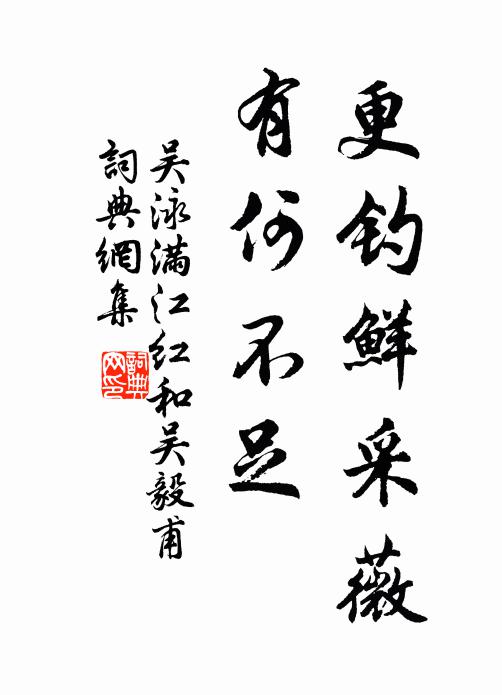 更钓鮮采薇
有何不足
吴泳满江红和吴毅甫
詞典網集
詞典网印